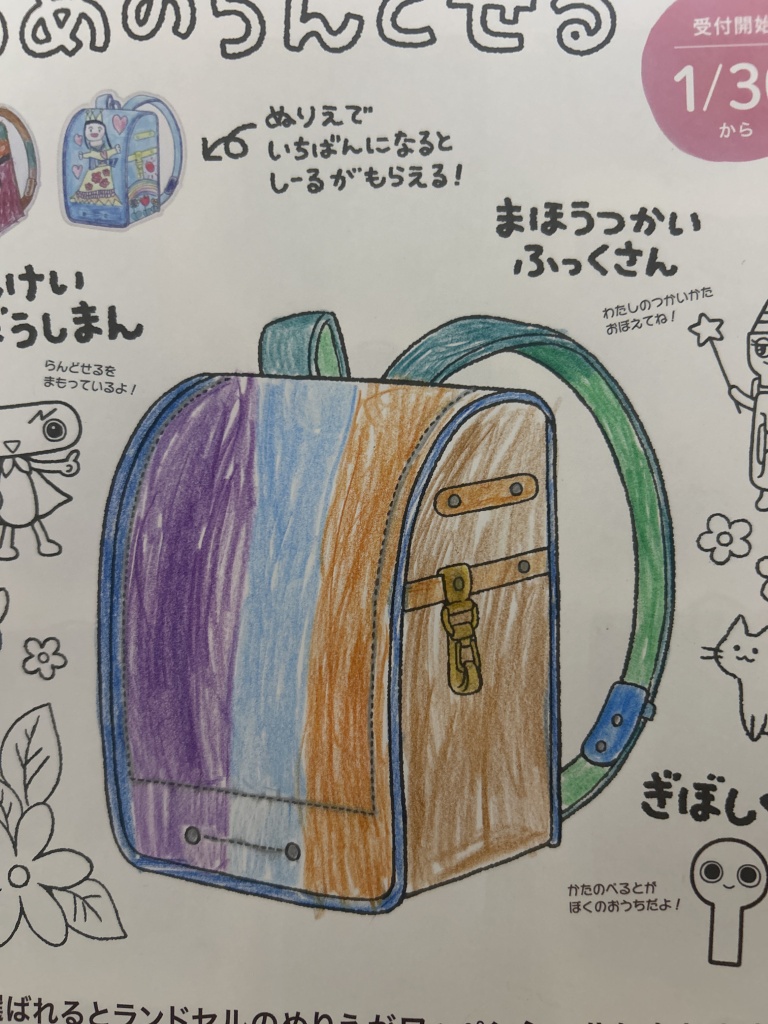 めのらんどせる
受付開始
1/30
から
ぬりえで
いちばんになると
しーるがもらえる！
まほうつかい
ふっくさん
わたしのつかいかた
おぼえてね！
けい
うしまん
らんどせるを
まもっているよ！
ぎぼし
かたのべるとが
ぼくのおうちだよ！
ばれるとランドセルのぬりえが